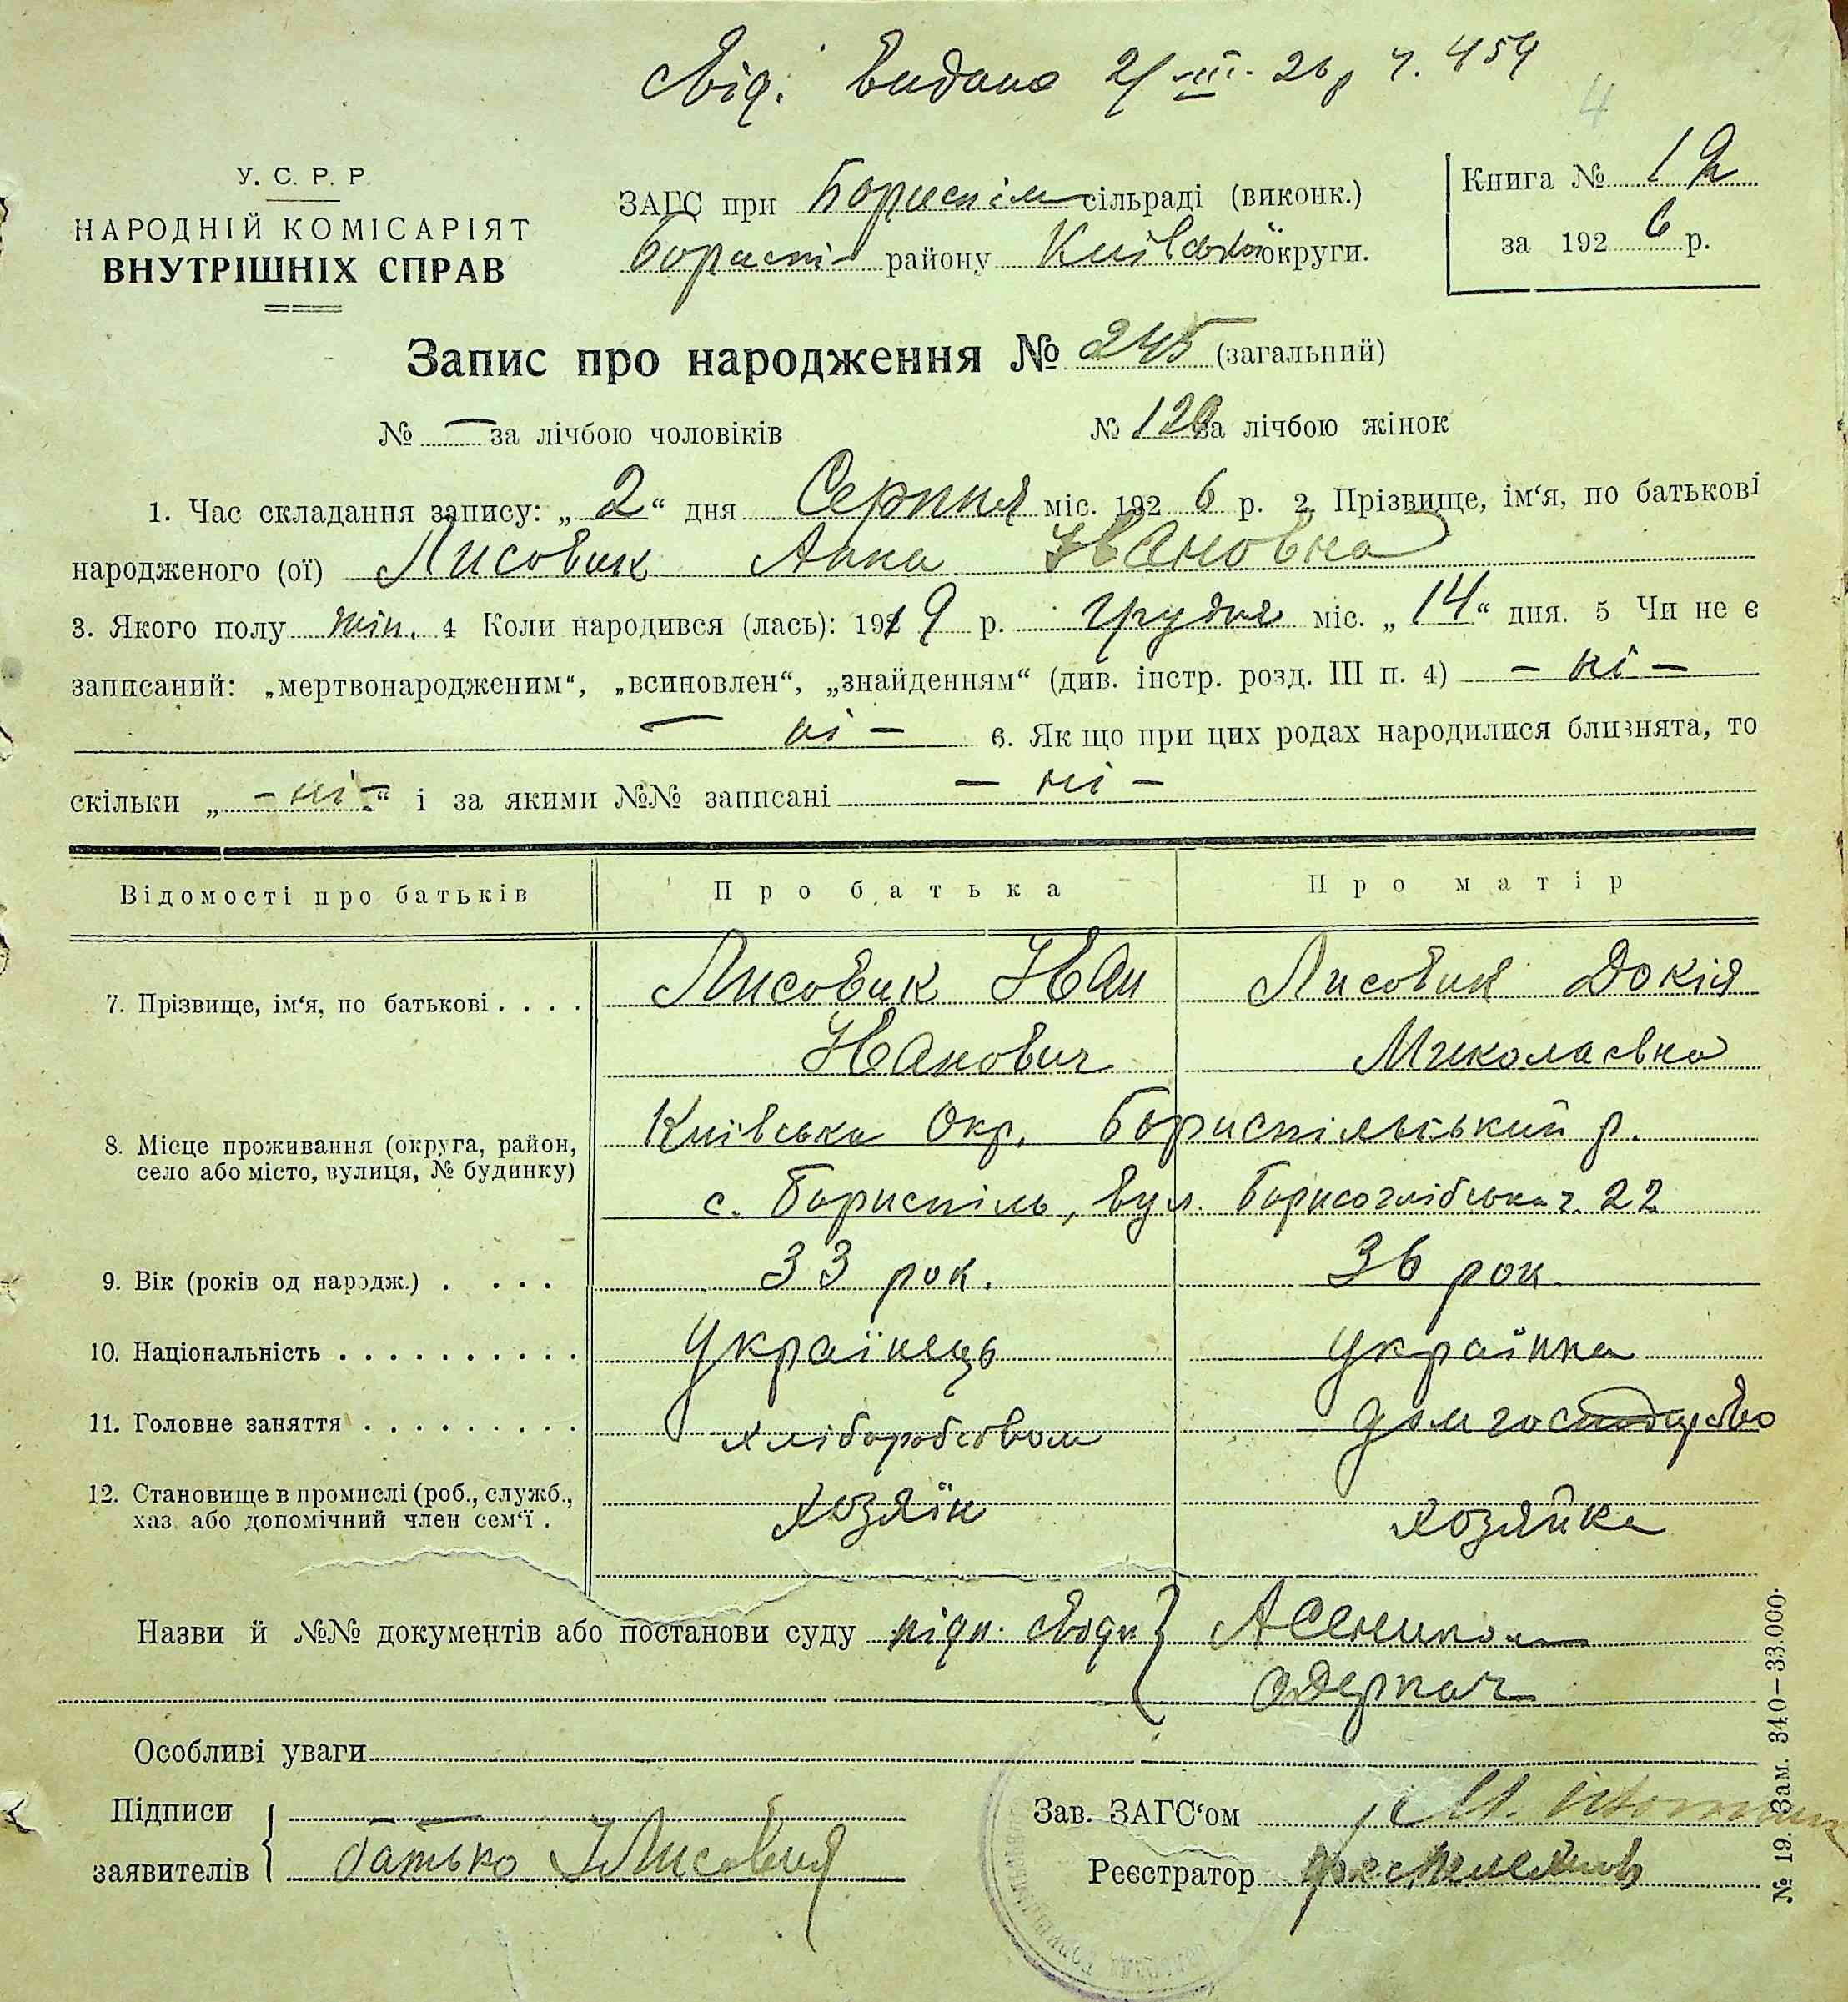 Свід. видано 2/III. 26 р ч. 459
4
У. С. Р. Р.
НАРОДНІЙ КОМІСАРІЯТ
ВНУТРІШНІХ СПРАВ
ЗАГС при Бориспіль сільраді (виконк.)
Бориспі- району Київської округи.
Книга № 12
за 192 6 р.
Запис про народження № 245 (загальний)
№ — за лічбою чоловіків № 120 за лічбою жінок
1. Час складання запису: „ 2 “ дня Серпня міс. 192 6 р. 2. Прізвище, ім‘я, по батькові
народженого (ої) Лисовик Анна Івановна
3. Якого полу жін. 4 Коли народився (лась): 191 9 р. Грудня міс. „ 14 “ дня. 5 Чи не є
записаний: „мертвонародженим“, „всиновлен“, „знайденням“ (див. інстр. розд. III п. 4) — ні —
— ні — 6. Як що при цих родах народилися близнята, то
скільки „ — ні — “ і за якими №№ записані — ні —
Відомості про батьків Про батька Про матір
7. Прізвище, ім‘я, по батькові . . . . Лисовик Іван Лисовик Докія
Іванович Миколаєвна
Київська Окр. Бориспільський р.
8. Місце проживання (округа, район,
село або місто, вулиця, № будинку)
с. Бориспіль, вул. Борисоглібська ч. 22
9. Вік (років од народж.) . . . . 33 рок. 36 рок
10. Національність . . . . . . . . . . Українець Українка
11. Головне заняття . . . . . . . . . хліборобством дом господарство
12. Становище в промислі (роб., служб.,
хаз. або допомічний член сем‘ї . Хозяїн Хозяйка
Назви й №№ документів або постанови суду підп. свідк }
Особливі уваги
Підписи
заявителів { батько І Лисовик
Зав. ЗАГС‘ом
Реєстратор
№ 19. Зам. 340—33.000.